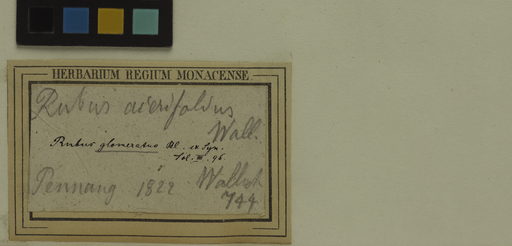 HERBARIUM REGIUM MONACENSE
Rubus acerifolius
Wall.
Rubus glomeratus Bl. ex Syn.
Vol. III. 96.
Pennang 1822 Wallich
744